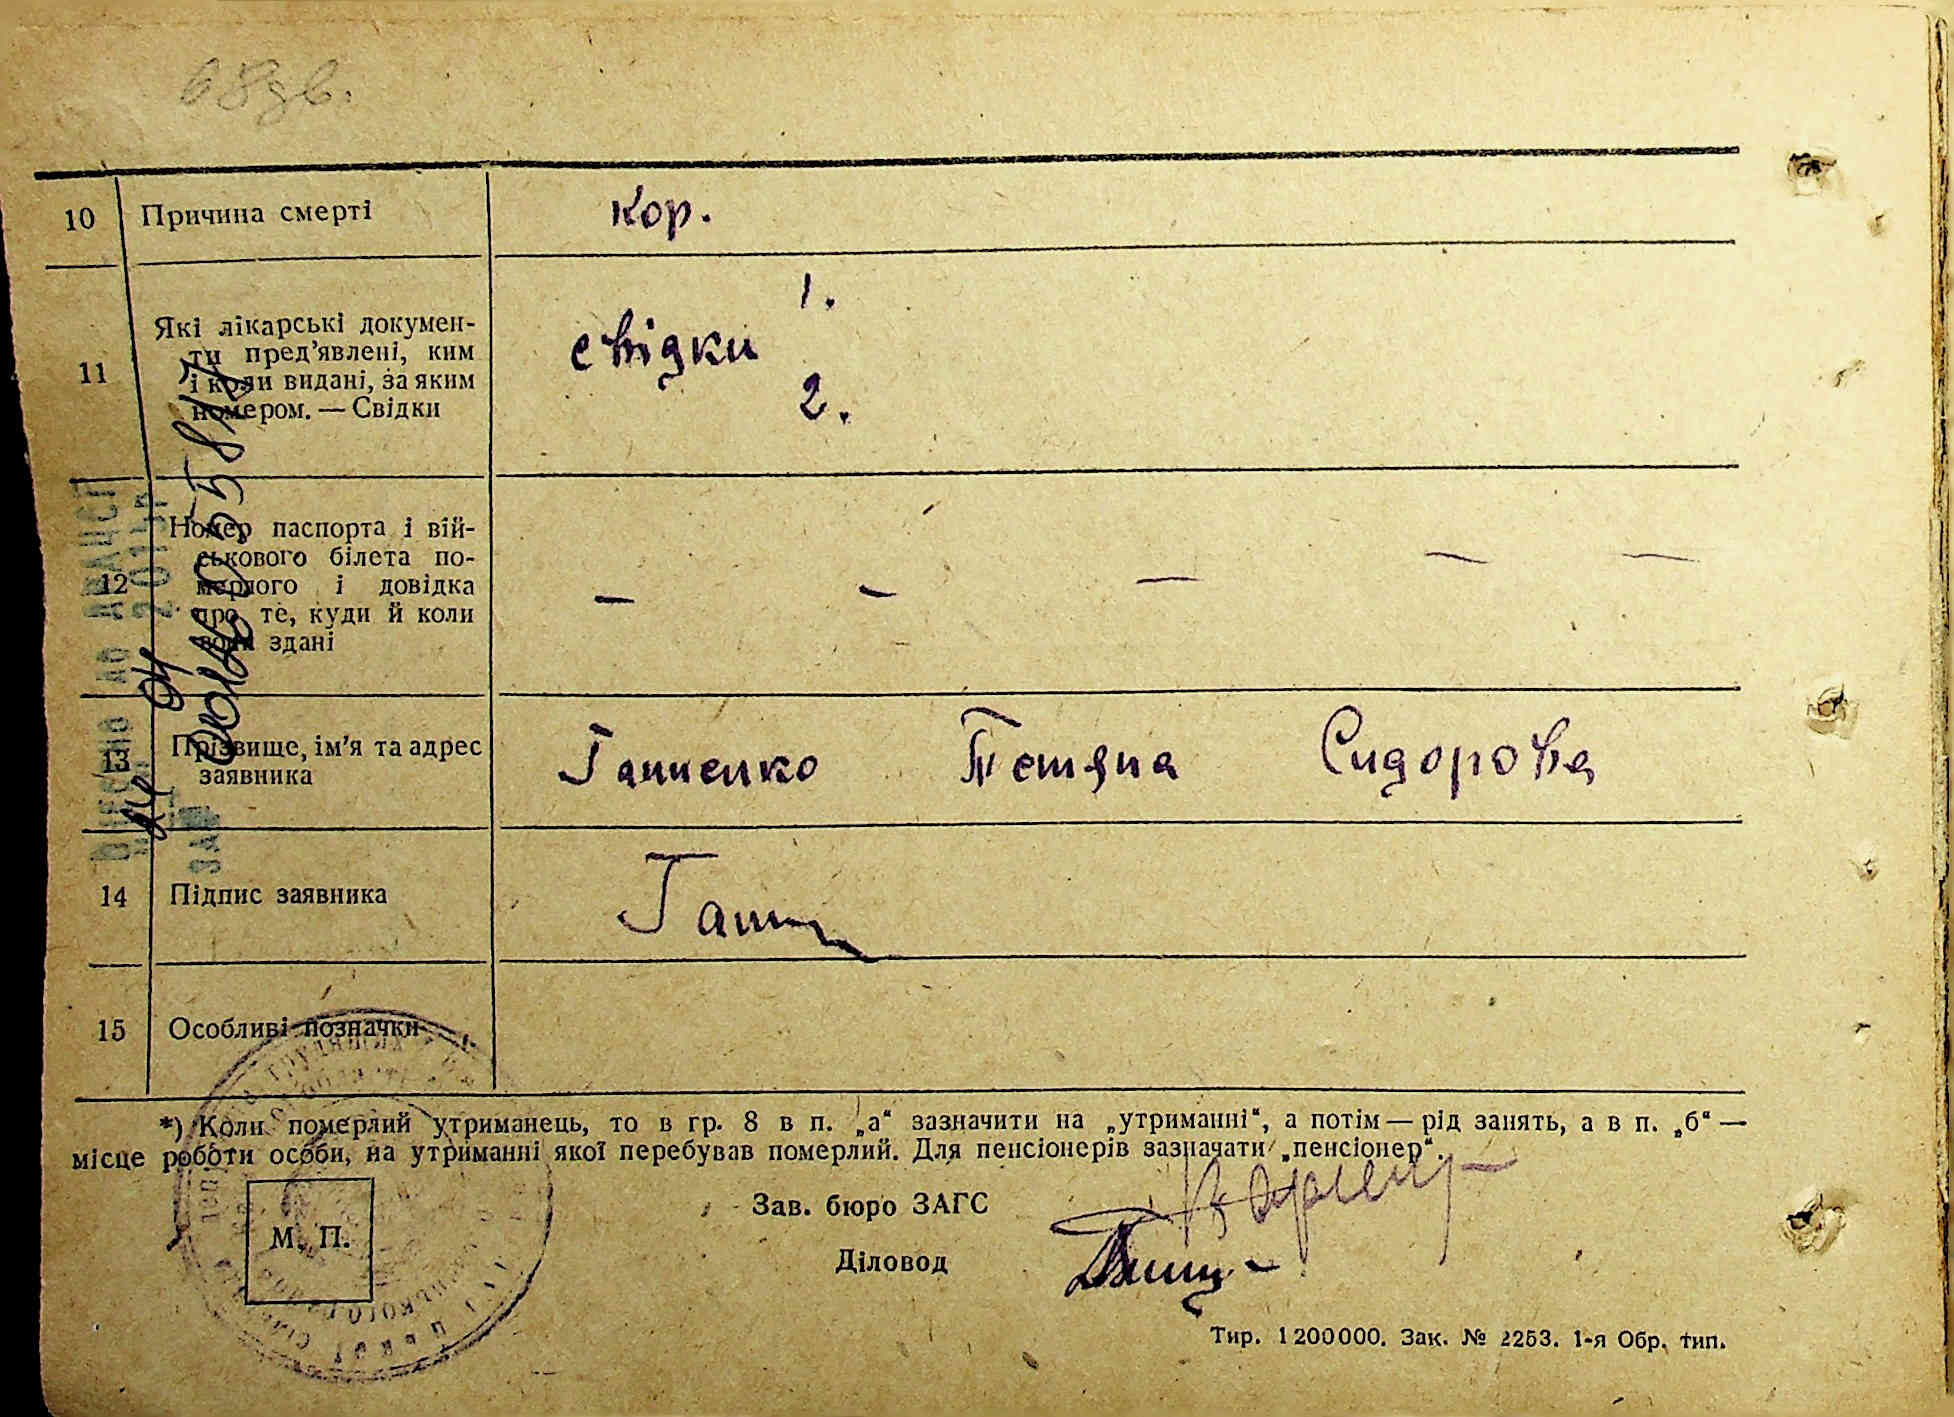 68 зв.
10 Причина смерті кор.
1.
11 Які лікарські докумен-
ти пред'явлені, ким
і коли видані, за яким
номером. — Свідки
свідки
2.
12 Номер паспорта і вій-
ськового білета по-
мерлого і довідка
про те, куди й коли
вони здані
— — — — —
13 Прізвище, ім'я та адрес
заявника
Ганненко Тетяна Сидорова
14 Підпис заявника
15 Особливі позначки
*) Коли померлий утриманець, то в гр. 8 в п. „а“ зазначити на „утриманні“, а потім — рід занять, а в п. „б“ —
місце роботи особи, на утриманні якої перебував померлий. Для пенсіонерів зазначати „пенсіонер“.
Зав. бюро ЗАГС
М. П.
Діловод
Тир. 1 200 000. Зак. № 2253. 1-я Обр. тип.